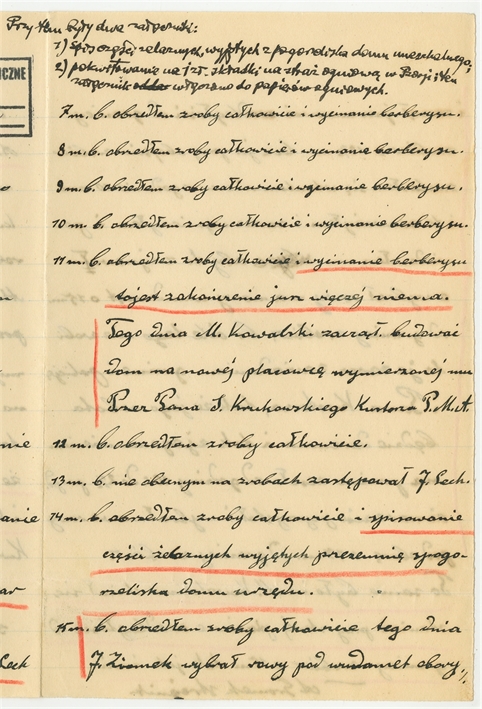 Przy tem były dwa załączniki:
1) spis części żelaznych, wyjętych z pogorzeliska domu mieszkalnego;
2) pokwitowanie na 1 zł. składki na straż ogniową w
załącznik włączono do papierów ogniowych.
ICZNE
7 m. b. obszedłem zroby całkowicie i wycinanie berberysu.
8 m. b. obszedłem zroby całkowicie i wycinanie berberysu.
9 m. b. obszedłem zroby całkowicie i wycinanie berberysu.
10 m. b. obszedłem zroby całkowicie i wycinanie berberysu.
11 m. b. obszedłem zroby całkowicie i wycinanie berberysu
tojest zakończenie jusz więczej niema.
Tego dnia M. Kowalski zaczął budować
dom na nowéj placówcę wymierzonéj mu
Przez Pana S. Krukowskiego Kustosza P.M.A.
12 m. b. obszedłem zroby całkowicie.
13 m. b. nie obecnym na zrobach zastępował J. Lech.
14 m. b. obszedłem zroby całkowicie i spisowanie
części żelaznych wyjętych przezemnię spogo-
rzeliska domu urzędu.
15 m. b. obszedłem zroby całkowicie tego dnia
J. Ziomek wybrał rowy pod wudamęt obory
nie
anie
ar
Lech